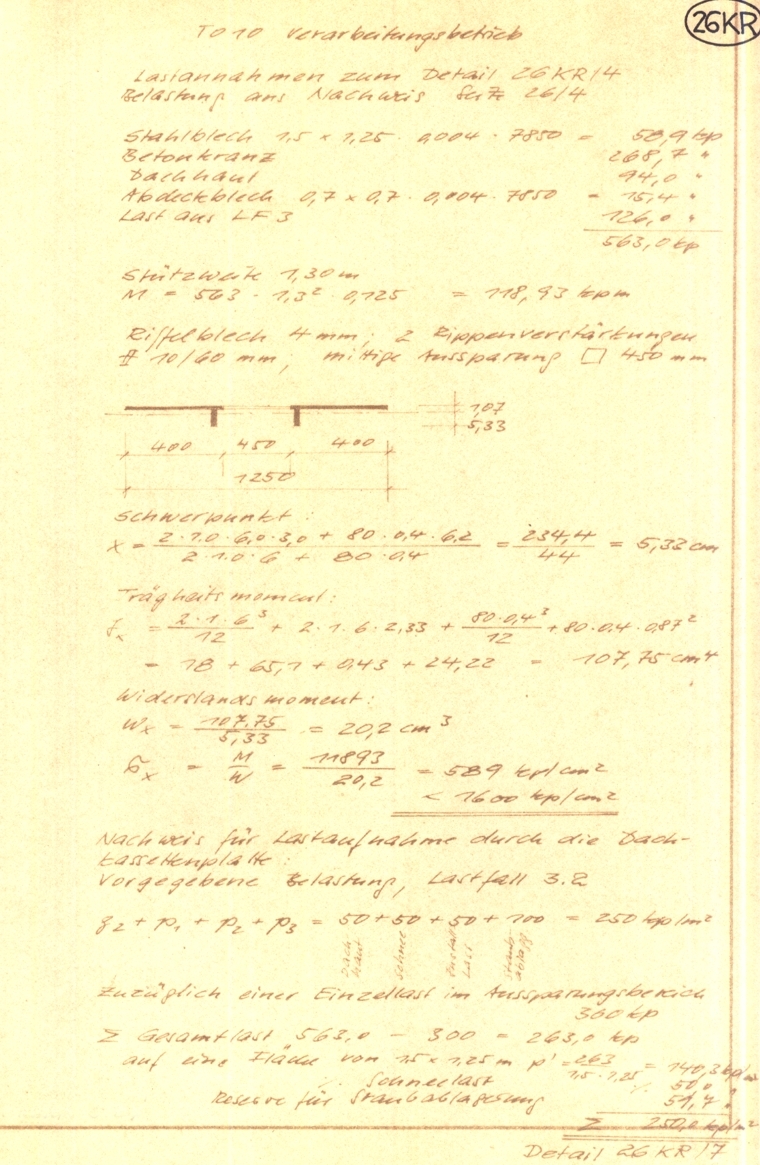 26KR
TO 10 Verarbeitungsbetrieb
Lastannahmen zum Detail 26KR/4
Belastung aus Nachweis 26/4
Stahlblech 1,5 x 1,25 · 0,004 · 7850 = 58,9 kp
Betonkranz 268,7 "
Dachhaut 94,0 "
Abdeckblech 0,7 x 0,7 · 0,004 · 7850 = 15,4 "
Last aus LF3 126,0 "
563,0 kp
Stützweite 1,30 m
M = 563 · 1,3² · 0,125 = 118,93 kpm
Riffelblech 4 mm; 2 Rippenverstärkungen
# 10/60 mm; mittige Aussparung □ 450 mm
1,07
5,33
400 450 400
1250
Schwerpunkt:
x = 2·1.0·6,0·3,0 + 80·0,4·6,2 / 2·1.0·6 + 80·0,4 = 234,4 / 44 = 5,33 cm
Trägheitsmoment:
Jx = 2·1·6³ / 12 + 2·1·6·2,33 + 80·0,4³ / 12 + 80·0,4·0,87²
= 18 + 65,1 + 0,43 + 24,22 = 107,75 cm⁴
Widerstandsmoment:
Wx = 107,75 / 5,33 = 20,2 cm³
σx = M / W = 11893 / 20,2 = 589 kp/cm²
< 1600 kp/cm²
Nachweis für Lastaufnahme durch die Dach-
kassettenplatte:
Vorgegebene Belastung, Lastfall 3.2
g2 + p1 + p2 + p3 = 50 + 50 + 50 + 100 = 250 kp/m²
Dach haut
Schnee
Last
Staub
Zuzüglich einer Einzellast im Aussparungsbereich
300 kp
Σ Gesamtlast 563,0 - 300 = 263,0 kp
auf eine Fläche von 1,5 x 1,25 m p' = 263 / 1,5 · 1,25 = 140,3 kp/m²
·/. Schneelast ·/. 50,0 "
Reserve für Staubablagerung 59,7 "
Σ 250,0 kp/m²
Detail 26 KR/7